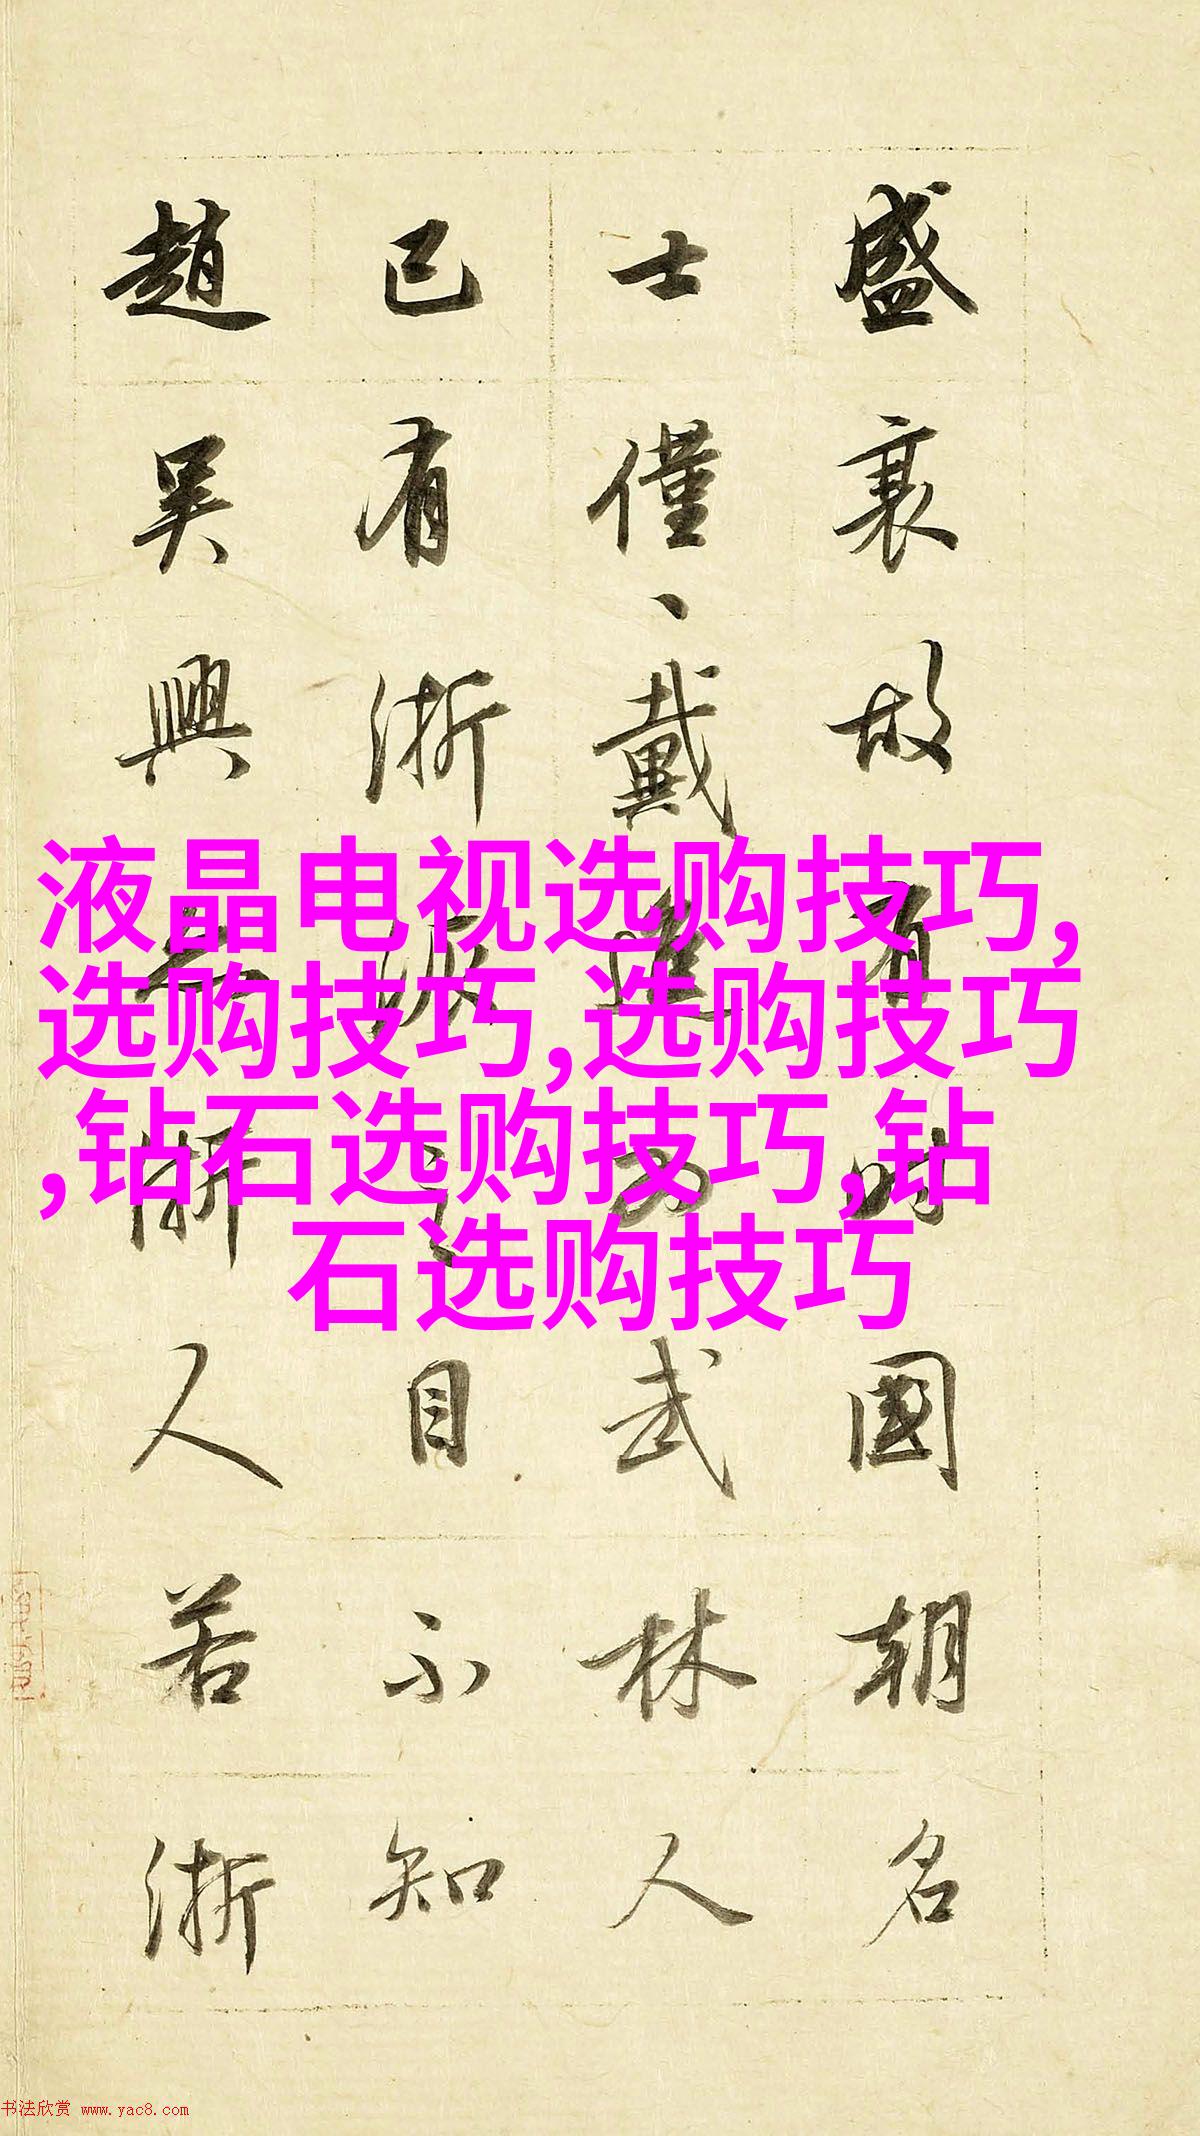 盛衰故有时國朝名
士僅、戴進为武林人
已有浙派之目不知
趙吴興亦浙人若浙
液晶电视选购技巧,
选购技巧,选购技巧
,钻石选购技巧,钻
石选购技巧
书法欣赏 www.yac8.com